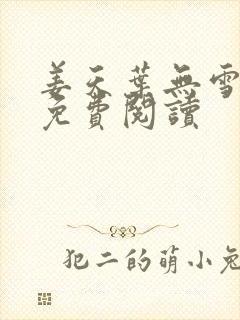 姜天葉無雪
免費閱讀
犯二的萌小兔